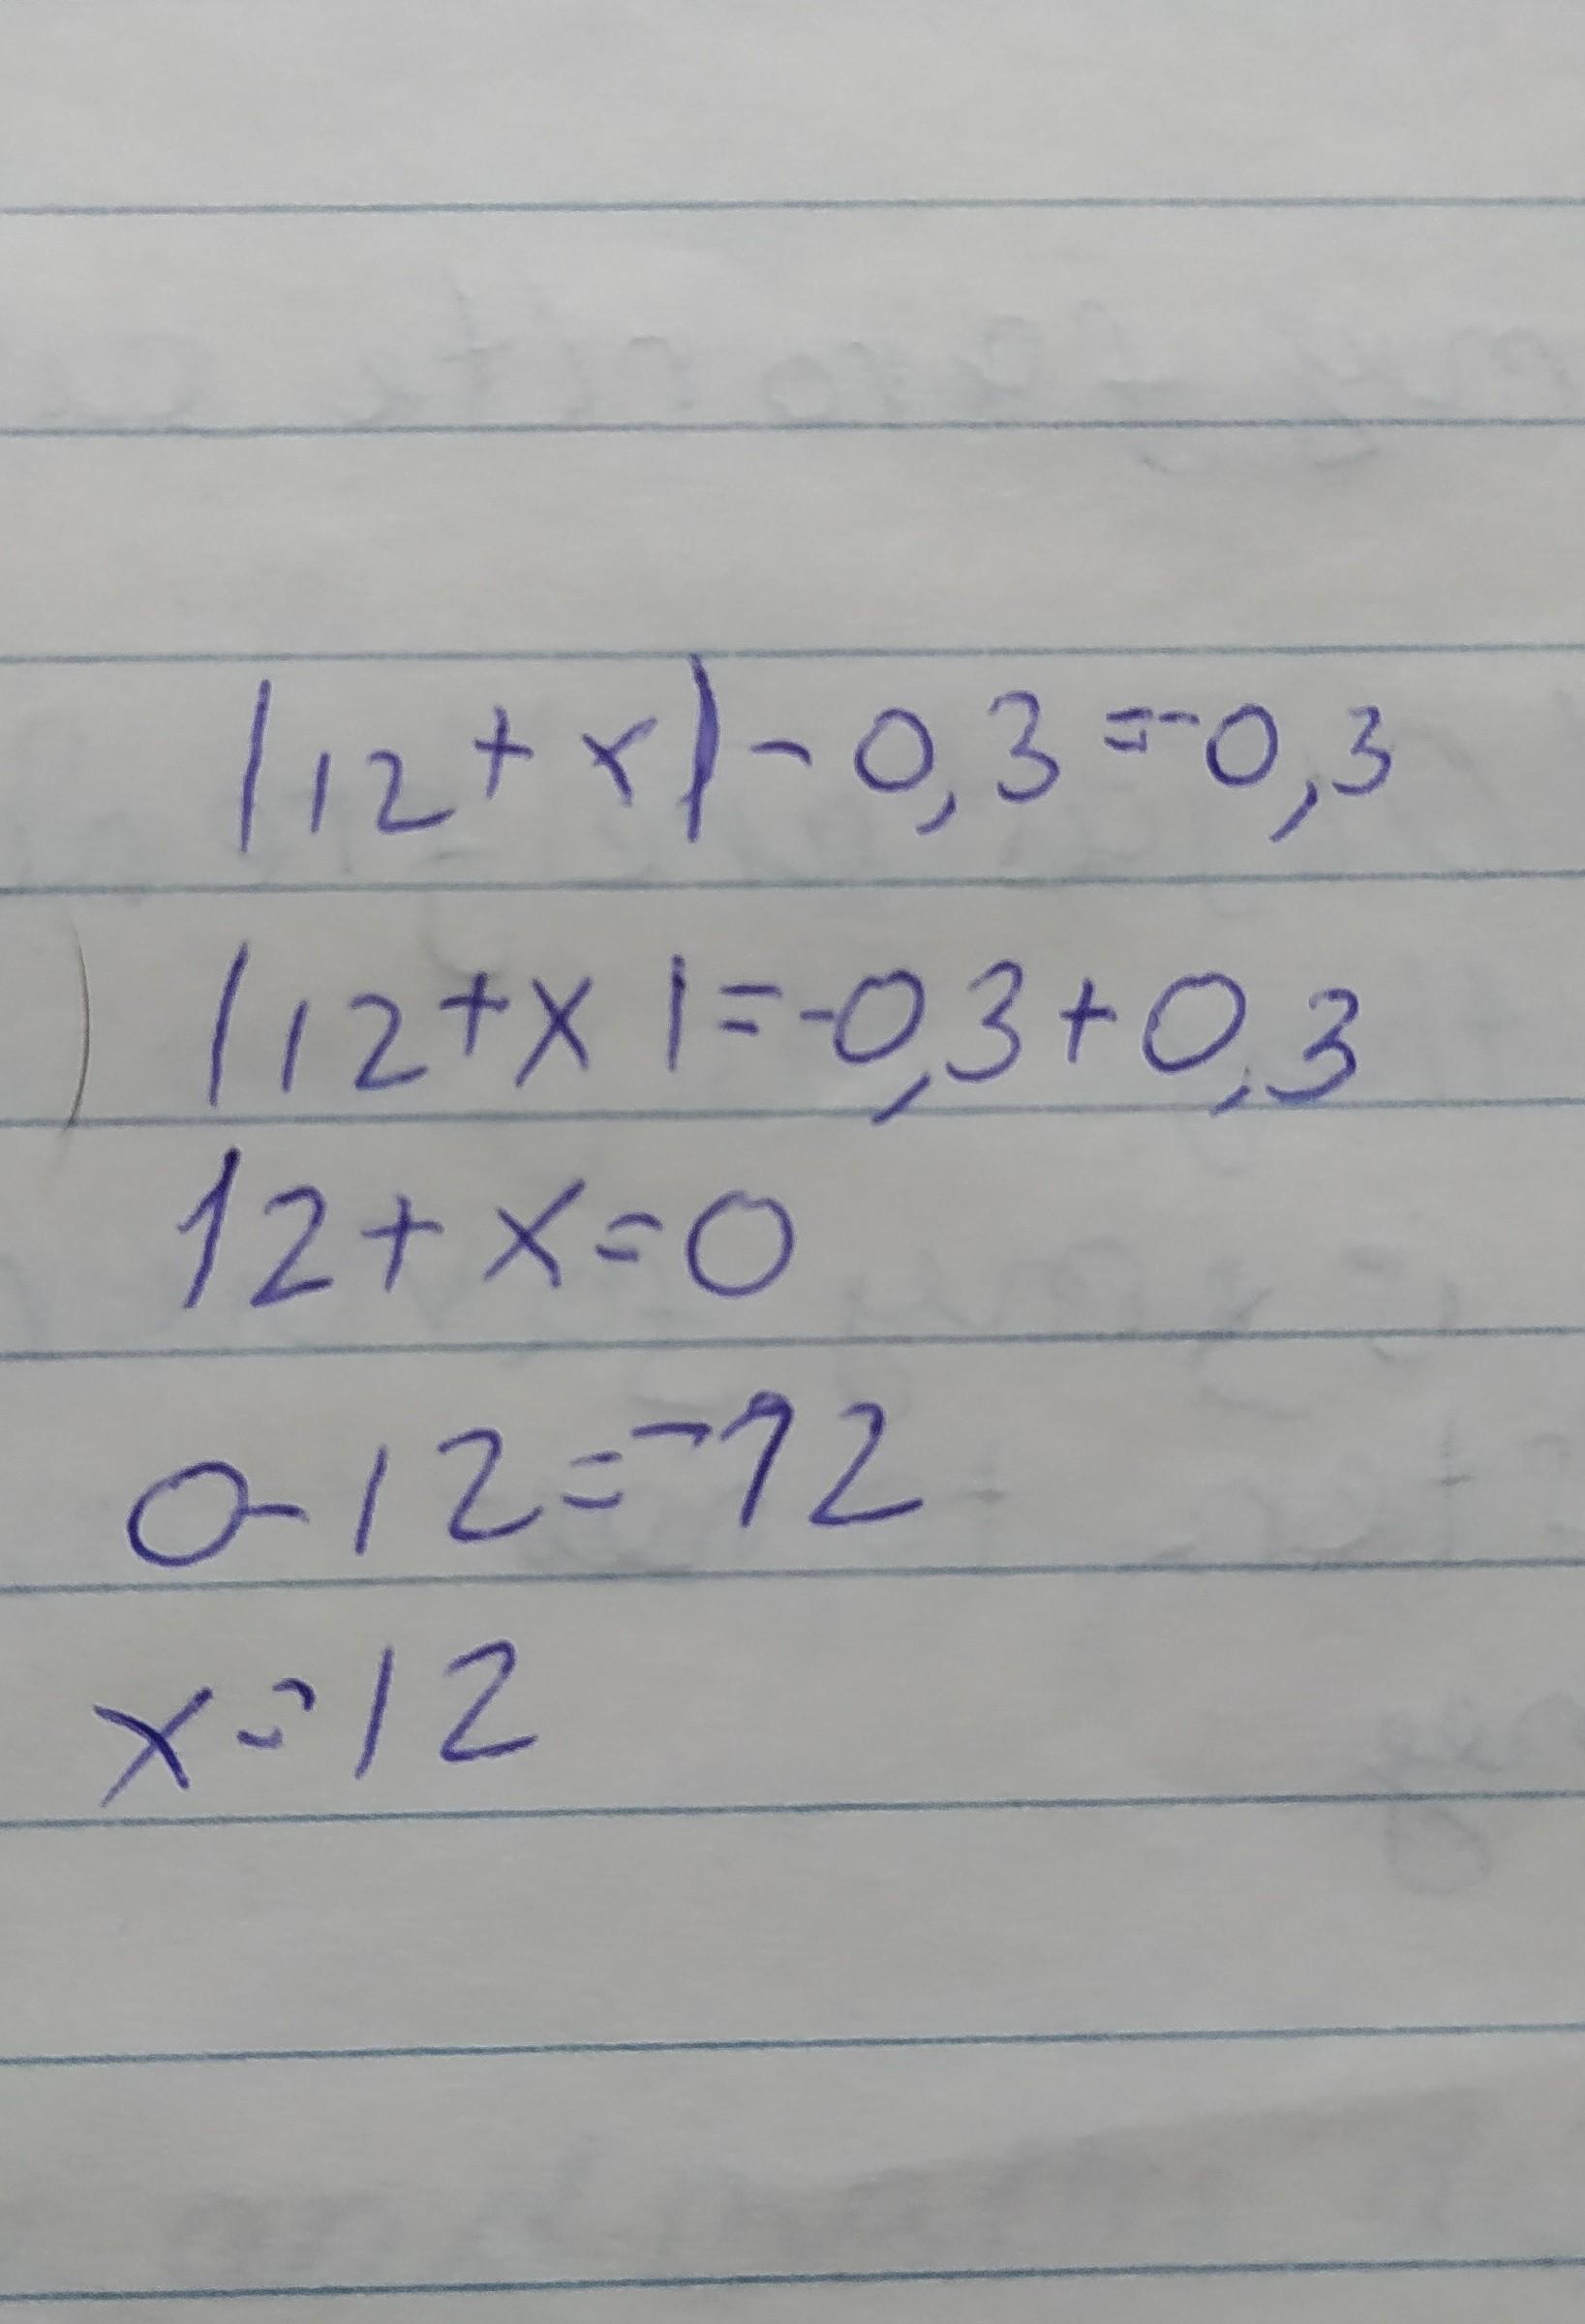 |12+x|-0,3=-0,3
|12+x|=-0,3+0,3
12+x=0
0-12=-12
x=12